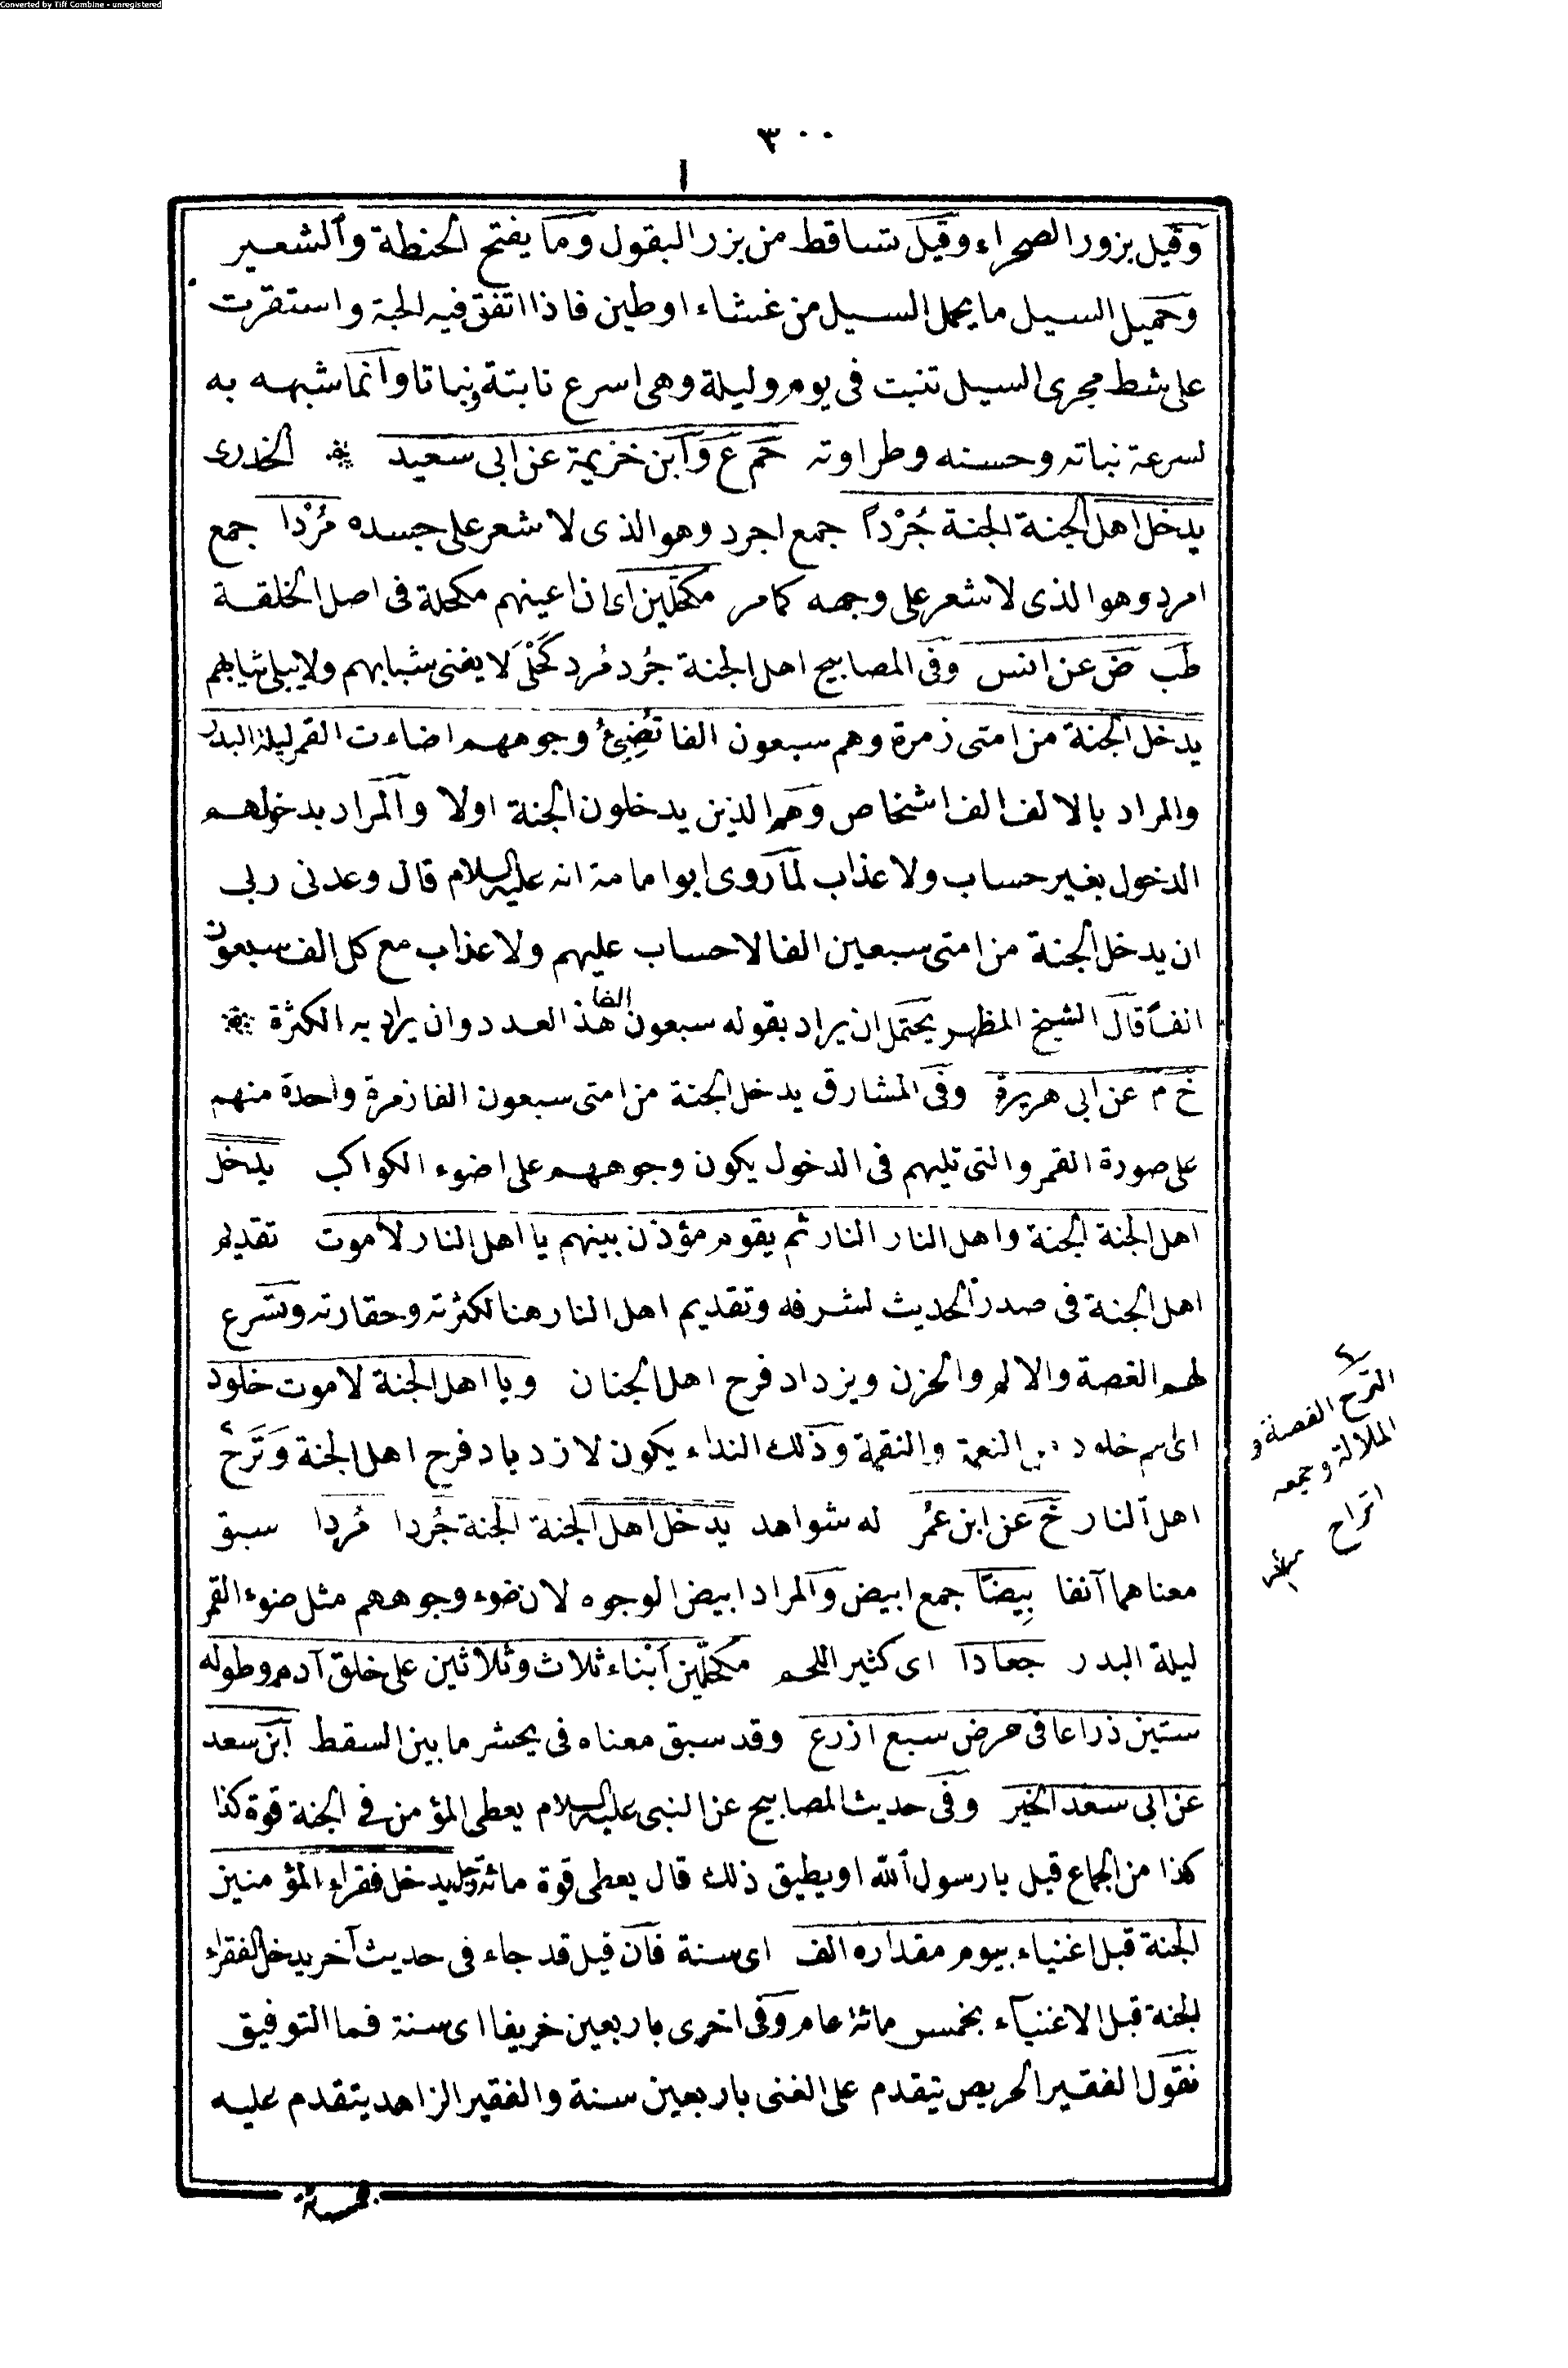 Converted by Tiff Combine - unregistered
٣٠٠
وقيل بزور الصحراء وقيل تساقط من بزر البقول وما يفتح الحنطة والشعير
وحميل السيل ما يحمل السيل من غثاء او طين فاذا اتفق فيه الحبة واستقرت
على شط مجرى السيل تنبت فى يوم وليلة وهى اسرع نابتة ونباتا وانما شبهه به
لسرعة نباته وحسنه وطراوته حم ع وابن خزيمة عن ابى سعيد الخدرى
يدخل اهل الجنة الجنة جُرْداً جمع اجرد وهو الذى لا شعر على جسده مُرْدا جمع
امرد وهو الذى لا شعر على وجهه كما مر مكحّلين اى ان اعينهم مكحلة فى اصل الخلقة
طب ض عن انس وفى المصابيح اهل الجنة جُرد مُرد كَحْلَى لا يفنى شبابهم ولا يبلى ثيابهم
يدخل الجنة من امتى زمرة وهم سبعون الفا تُضِئُ وجوههم اضاءت القمر ليلة البدر
والمراد بالالف الف اشخاص وهم الذين يدخلون الجنة اولا والمراد بدخولهم
الدخول بغير حساب ولا عذاب لما روى ابوامامة انه عليه السلام قال وعدنى ربى
ان يدخل الجنة من امتى سبعين الفا لاحساب عليهم ولا عذاب مع كل الف سبعون
الفاً قال الشيخ المظهر يحتمل ان يراد بقوله سبعون الفا هذ العدد وان يراد به الكثرة
خ م عن ابى هريرة وفى المشارق يدخل الجنة من امتى سبعون الفا زمرة واحدة منهم
على صورة القمر والتى تليهم فى الدخول يكون وجوههم على اضوء الكواكب يدخل
اهل الجنة الجنة واهل النار النار ثم يقوم مؤذن بينهم يا اهل النار لا موت تقديم
اهل الجنة فى صدر الحديث لشرفه وتقديم اهل النار هنا لكثرته وحقارته وتسرع
لهم الغصة والالم والحزن ويزداد فرح اهل الجنان ويا اهل الجنة لا موت خلود
خلود النعمة والنقمة وذلك النداء يكون لازدياد فرح اهل الجنة وتَرَحُ
اهل النار خ عن ابن عُمر له شواهد يدخل اهل الجنة الجنة جُردا مُردا سبق
معناهما آنفا بِيضًا جمع ابيض والمراد ابيض الوجوه لان ضوء وجوههم مثل ضوء القمر
ليلة البدر جعادا اى كثير اللحم مكحّلين ابناء ثلاث وثلاثين على خلق آدم وطوله
ستين ذراعا فى عرض سبع اذرع وقد سبق معناه فى يحشر ما بين السقط ابن سعد
عن ابى سعد الخير وفى حديث المصابيح عن النبى عليه السلام يعطى المؤمن فى الجنة قوة كذا
كذا من الجماع قيل يا رسول الله او يطيق ذلك قال يعطى قوة مائة رجل يدخل فقراء المؤمنين
الجنة قبل اغنياء بيوم مقداره الف اى سنة فان قيل قد جاء فى حديث آخر يدخل الفقراء
الجنة قبل الاغنياء بخمس مائة عام وفى اخرى باربعين خريفا اى سنة فما التوفيق
نقول الفقير الحريص يتقدم على الغنى باربعين سنة والفقير الزاهد يتقدم عليه
بخمسمائة
الترح الغصة و
الملالة وجمعه
اتراح